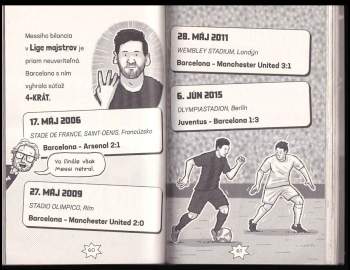 Messiho bilancia
v Lige majstrov je
priam neuveriteľná.
Barcelona s ním
vyhrala súťaž
4-KRÁT.
17. MÁJ 2006
STADE DE FRANCE, SAINT-DENIS, Francúzsko
Barcelona - Arsenal 2:1
Vo finále však
Messi nehral.
27. MÁJ 2009
STADIO OLIMPICO, Rím
Barcelona - Manchester United 2:0
60
28. MÁJ 2011
WEMBLEY STADIUM, Londýn
Barcelona - Manchester United 3:1
6. JÚN 2015
OLYMPIASTADION, Berlín
Juventus - Barcelona 1:3
61